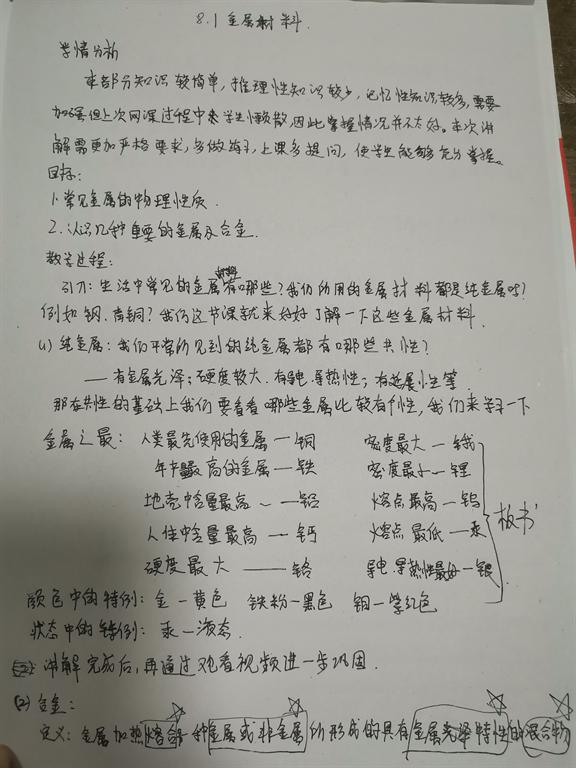 8.1 金属材料.
学情分析
本部分知识较简单,推理性知识较少,记忆性知识较多,需要
加强但上次网课过程中学生懒散,因此掌握情况并不太好。本次讲
解需更加严格要求,多做练习,上课多提问,使学生能够充分掌握。
目标:
1.常见金属的物理性质.
2.认识几种重要的金属及合金.
教学过程:
引入:生活中常见的金属材料有哪些?我们所用的金属材料都是纯金属吗?
例如钢.青铜?我们这节课就来好好了解一下这些金属材料.
(1) 纯金属:我们平常所见到的纯金属都有哪些共性?
——有金属光泽;硬度较大.有导电.导热性;有延展性等.
那在共性的基础上我们要看看哪些金属比较有个性,我们来学习一下
金属之最: 人类最先使用的金属—铜 密度最大—锇
年产量最高的金属—铁 密度最小—锂
地壳中含量最高——铝 熔点最高—钨
人体中含量最高—钙 熔点最低—汞
硬度最大——铬 导电.导热性最好—银
板书
颜色中的特例: 金—黄色 铁粉—黑色 铜—紫红色
状态中的特例: 汞—液态.
讲解完成后,再通过观看视频进一步巩固.
(2) 合金:
定义: 金属加热熔合某种金属或非金属所形成的具有金属光泽特性的混合物